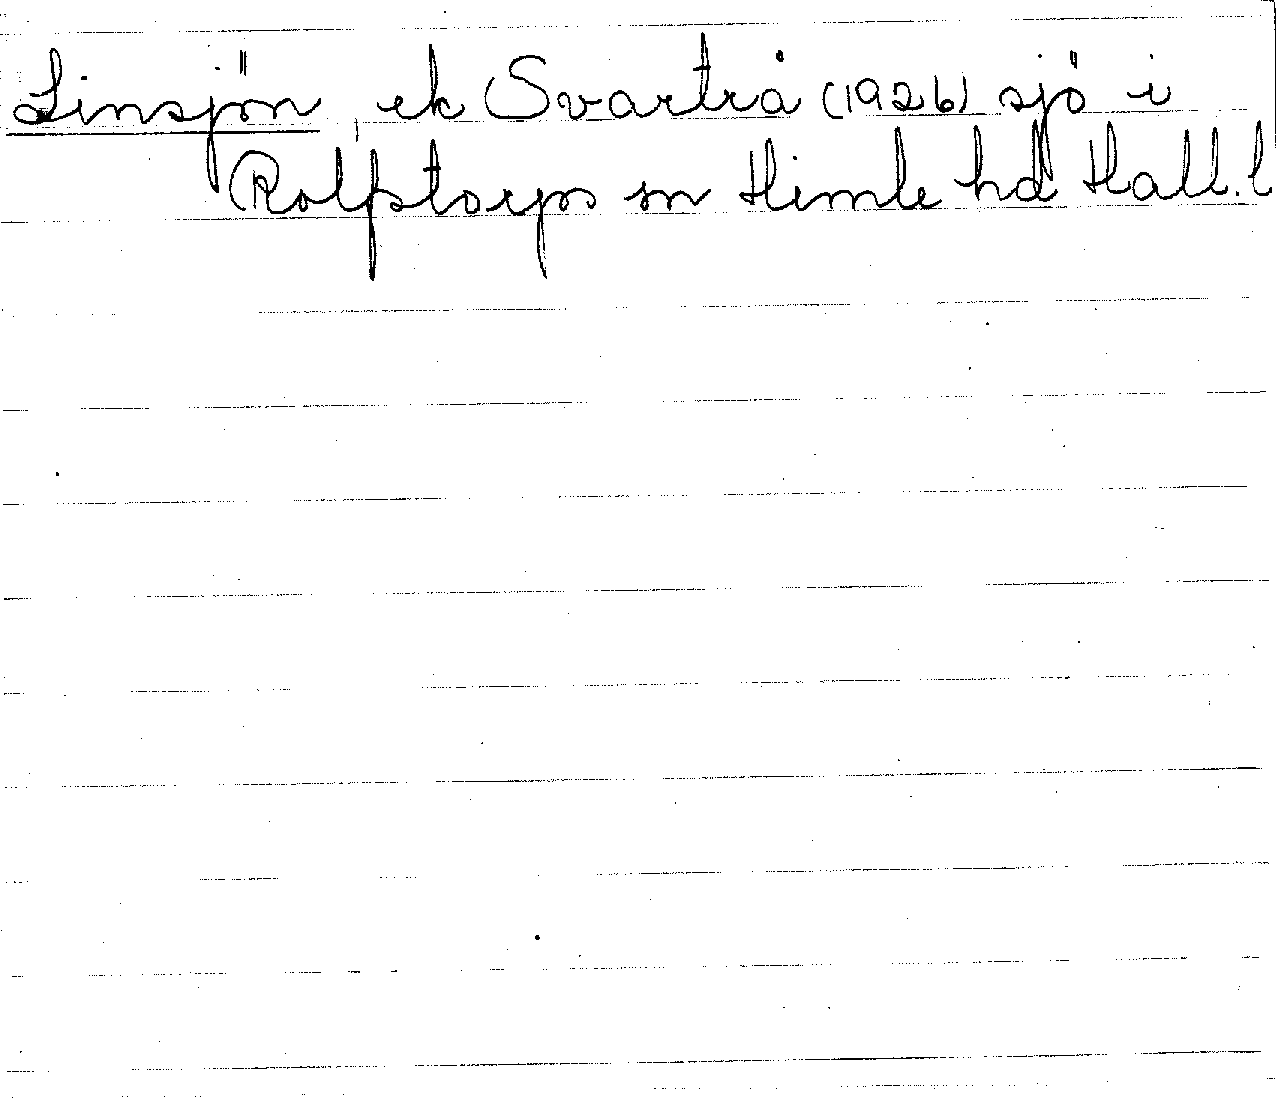 Linsjön, ek Svartrå (1926) sjö i
Rolfstorps sn Himle hd Hall. l